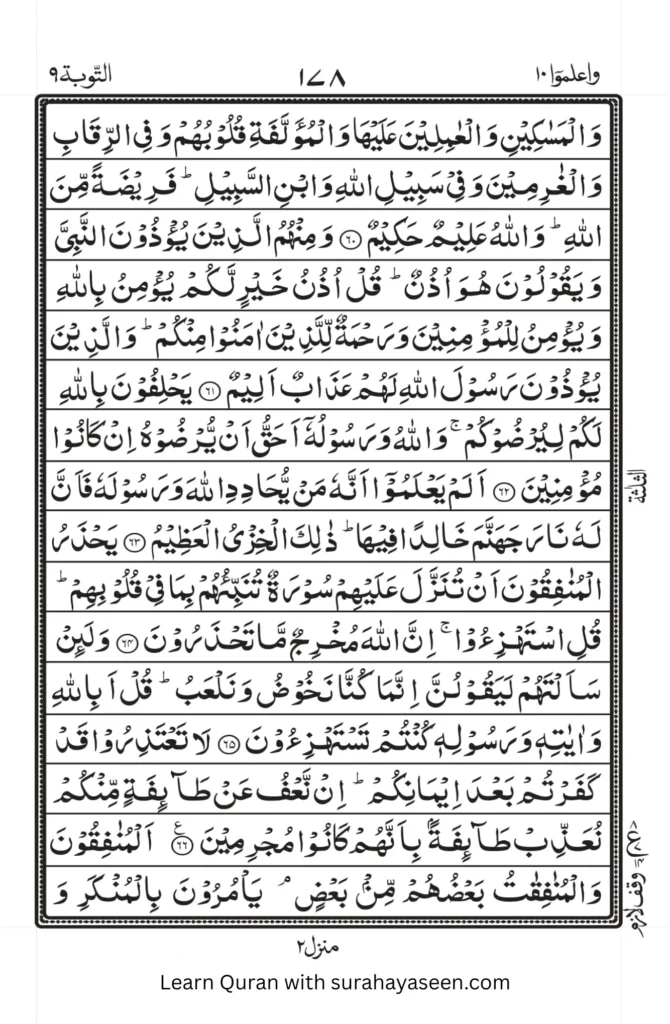 واعلموا ١٠ ١٧٨ التّوبة ٩
وَالْمَسٰكِيْنِ وَالْعٰمِلِيْنَ عَلَيْهَا وَالْمُؤَلَّفَةِ قُلُوْبُهُمْ وَفِي الرِّقَابِ
وَالْغٰرِمِيْنَ وَفِيْ سَبِيْلِ اللّٰهِ وَابْنِ السَّبِيْلِ ؕ فَرِيْضَةً مِّنَ
اللّٰهِ ؕ وَاللّٰهُ عَلِيْمٌ حَكِيْمٌ ﴿٦٠﴾ وَمِنْهُمُ الَّذِيْنَ يُؤْذُوْنَ النَّبِيَّ
وَيَقُوْلُوْنَ هُوَ اُذُنٌ ؕ قُلْ اُذُنُ خَيْرٍ لَّكُمْ يُؤْمِنُ بِاللّٰهِ
وَيُؤْمِنُ لِلْمُؤْمِنِيْنَ وَرَحْمَةٌ لِّلَّذِيْنَ اٰمَنُوْا مِنْكُمْ ؕ وَالَّذِيْنَ
يُؤْذُوْنَ رَسُوْلَ اللّٰهِ لَهُمْ عَذَابٌ اَلِيْمٌ ﴿٦١﴾ يَحْلِفُوْنَ بِاللّٰهِ
لَكُمْ لِيُرْضُوْكُمْ ۚ وَاللّٰهُ وَرَسُوْلُهٗۤ اَحَقُّ اَنْ يُّرْضُوْهُ اِنْ كَانُوْا
مُؤْمِنِيْنَ ﴿٦٢﴾ اَلَمْ يَعْلَمُوْۤا اَنَّهٗ مَنْ يُّحَادِدِ اللّٰهَ وَرَسُوْلَهٗ فَاَنَّ
الثلثة
لَهٗ نَارَ جَهَنَّمَ خَالِدًا فِيْهَا ؕ ذٰلِكَ الْخِزْيُ الْعَظِيْمُ ﴿٦٣﴾ يَحْذَرُ
الْمُنٰفِقُوْنَ اَنْ تُنَزَّلَ عَلَيْهِمْ سُوْرَةٌ تُنَبِّئُهُمْ بِمَا فِيْ قُلُوْبِهِمْ ؕ
قُلِ اسْتَهْزِءُوْا ۚ اِنَّ اللّٰهَ مُخْرِجٌ مَّا تَحْذَرُوْنَ ﴿٦٤﴾ وَلَئِنْ
سَاَلْتَهُمْ لَيَقُوْلُنَّ اِنَّمَا كُنَّا نَخُوْضُ وَنَلْعَبُ ؕ قُلْ اَبِاللّٰهِ
وَاٰيٰتِهٖ وَرَسُوْلِهٖ كُنْتُمْ تَسْتَهْزِءُوْنَ ﴿٦٥﴾ لَا تَعْتَذِرُوْا قَدْ
كَفَرْتُمْ بَعْدَ اِيْمَانِكُمْ ؕ اِنْ نَّعْفُ عَنْ طَآئِفَةٍ مِّنْكُمْ
نُعَذِّبْ طَآئِفَةًۢ بِاَنَّهُمْ كَانُوْا مُجْرِمِيْنَ ﴿٦٦﴾ۧ اَلْمُنٰفِقُوْنَ
وَالْمُنٰفِقٰتُ بَعْضُهُمْ مِّنْۢ بَعْضٍ ۘ يَاْمُرُوْنَ بِالْمُنْكَرِ وَ
وقف لازم
منزل ٢
Learn Quran with surahayaseen.com